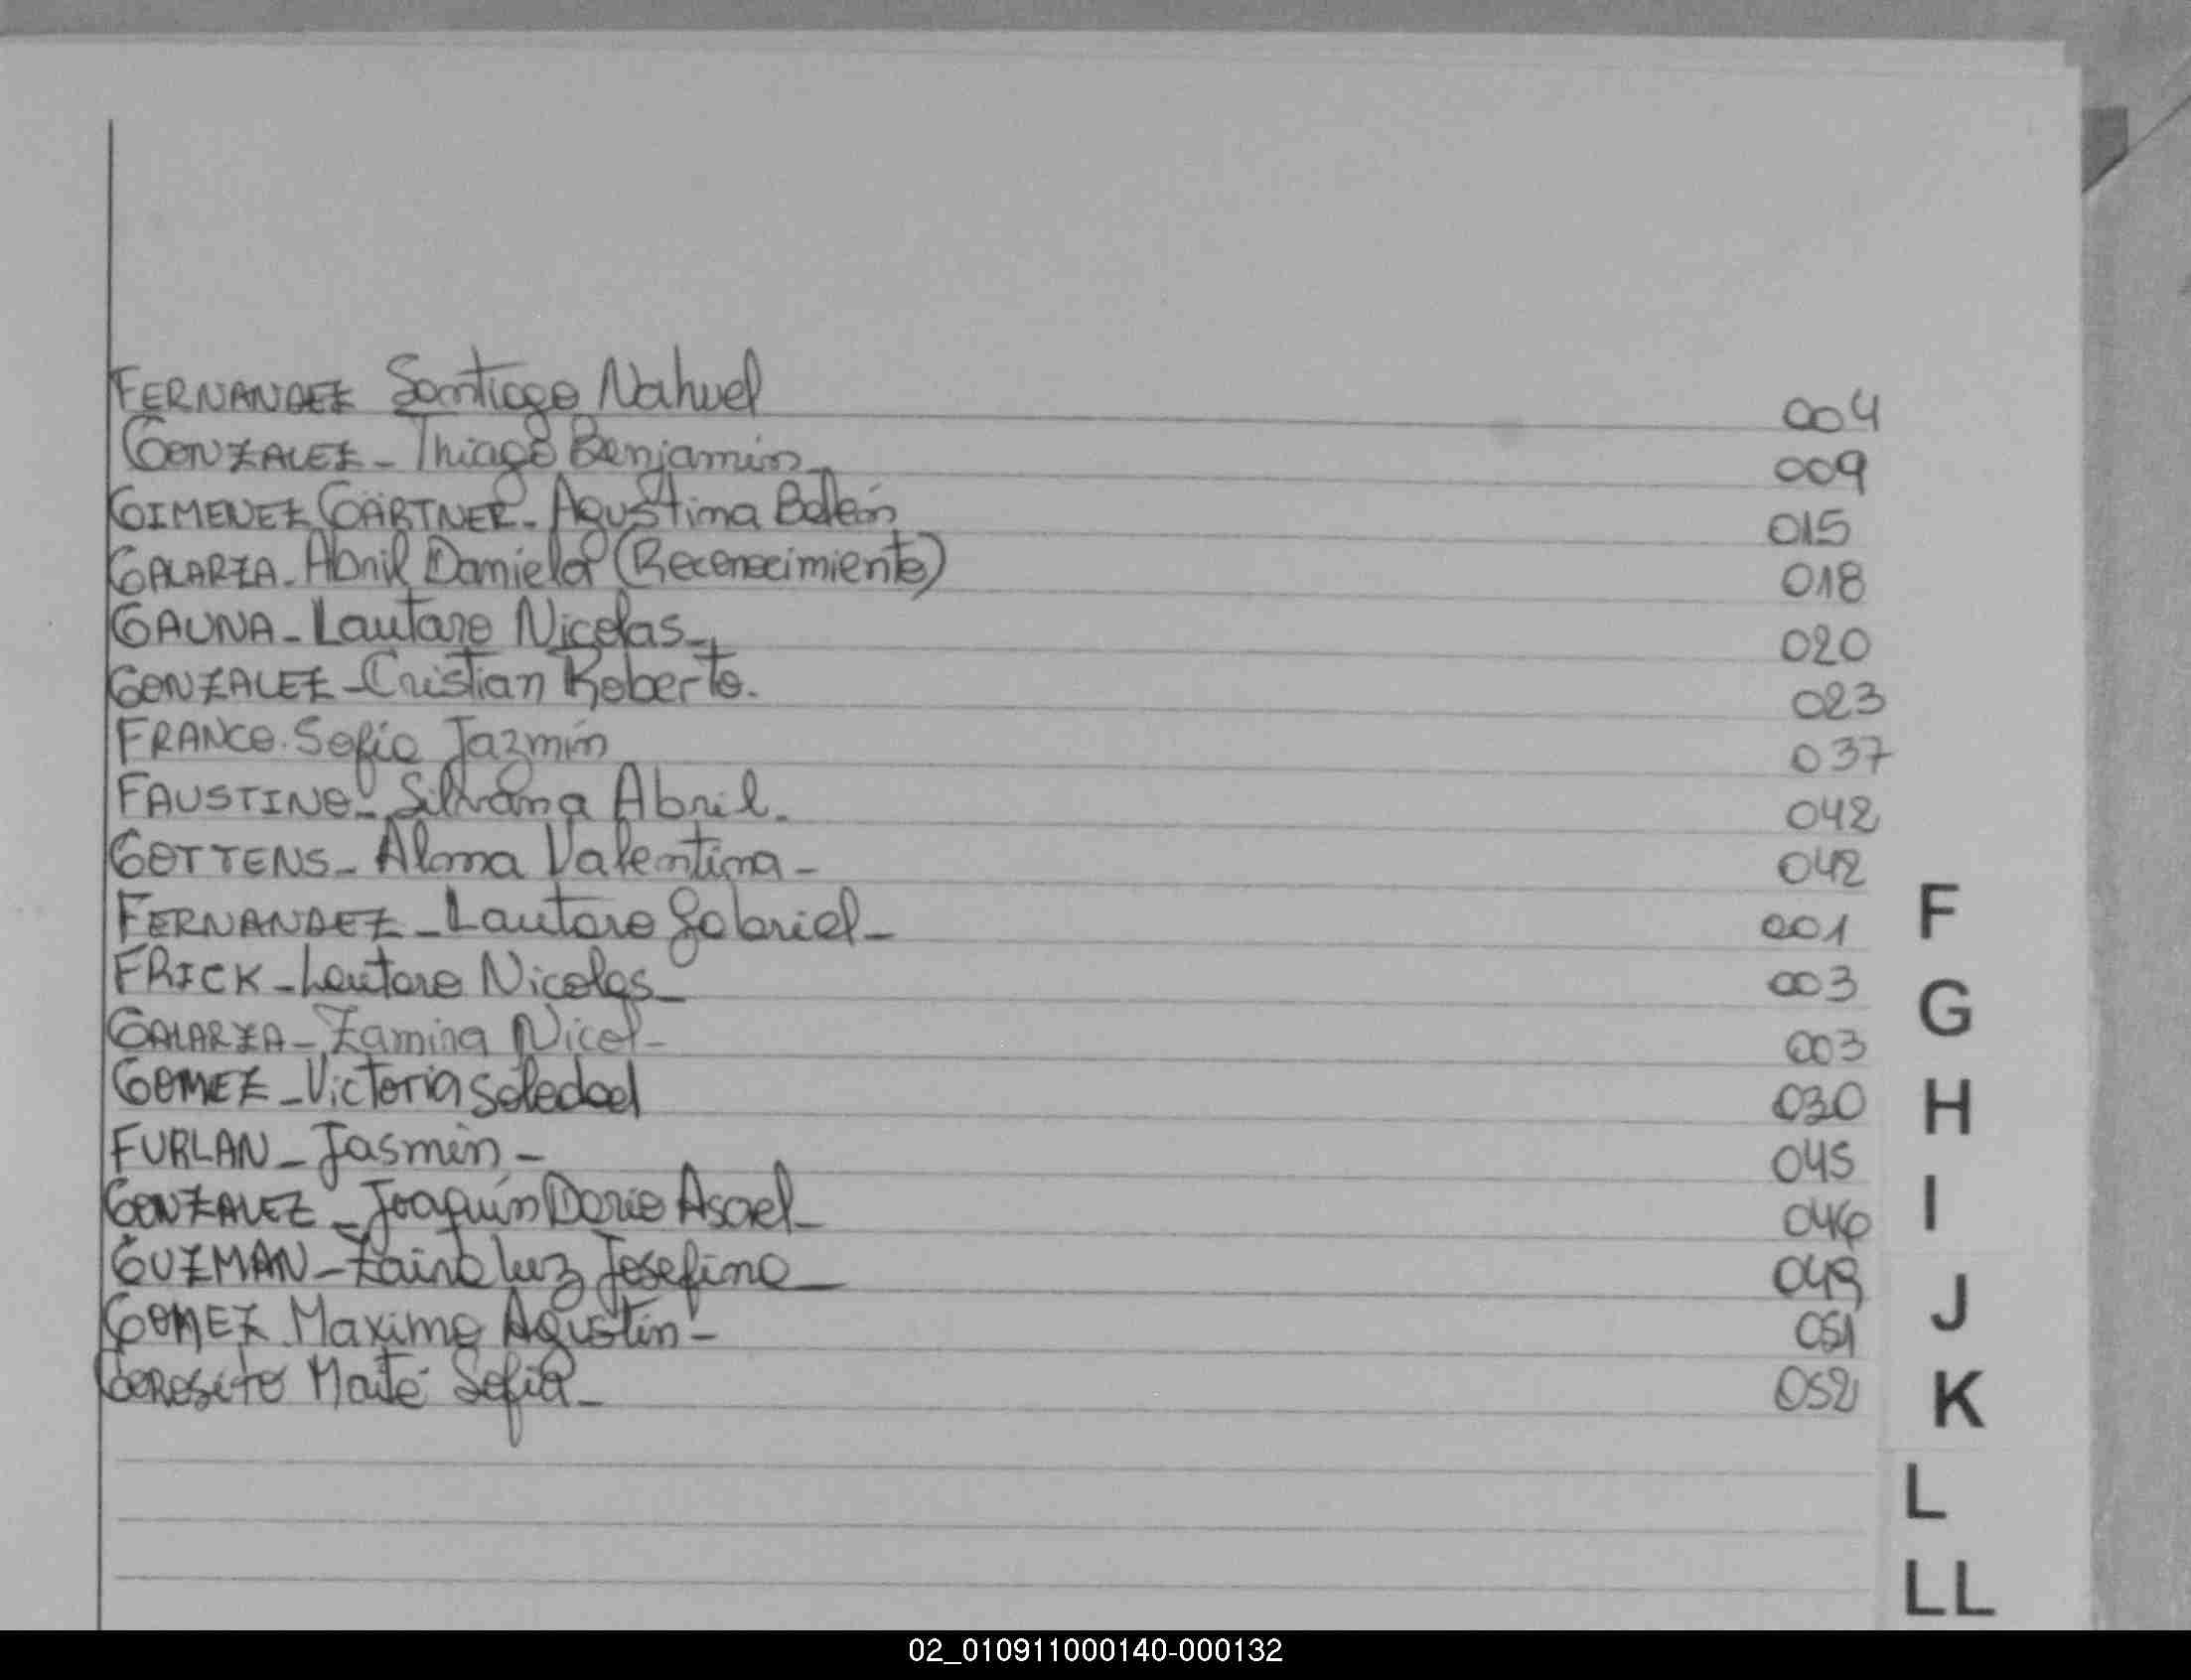 FERNANDEZ Santiago Nahuel 004
GONZALEZ - Thiago Benjamin - 009
GIMENEZ GÄRTNER - Agustina Belén 015
GALARZA - Abril Daniela (Reconocimiento) 018
GAUNA - Lautaro Nicolas - 020
GONZALEZ - Cristian Roberto. 023
FRANCO. Sofia Jazmín 037
FAUSTINO - Silvana Abril - 042
GOTTENS - Alma Valentina - 042
FERNANDEZ - Lautaro Gabriel - 001
F
FRICK - Lautaro Nicolas - 003
G
GALARZA - Zamira Nicol - 003
GOMEZ - Victoria Soledad 030
H
FURLAN - Jasmín - 045
GONZALEZ - Joaquín Dario Asael - 046
I
GUZMAN - Zaira luz Josefina - 049
GOMEZ Maximo Agustín - 051
J
Maité Sofia - 052
K
L
LL
02_010911000140-000132